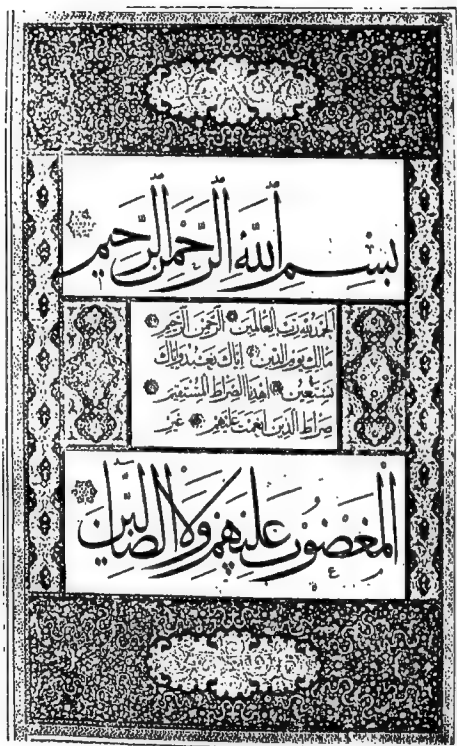 بِسْمِ اللَّهِ الرَّحْمَنِ الرَّحِيمِ
الحمد لله رب العالمين الرحمن الرحيم
مالك يوم الدين إياك نعبد وإياك
نستعين اهدنا الصراط المستقيم
صراط الذين أنعمت عليهم غير
المغضوب عليهم ولا الضالين